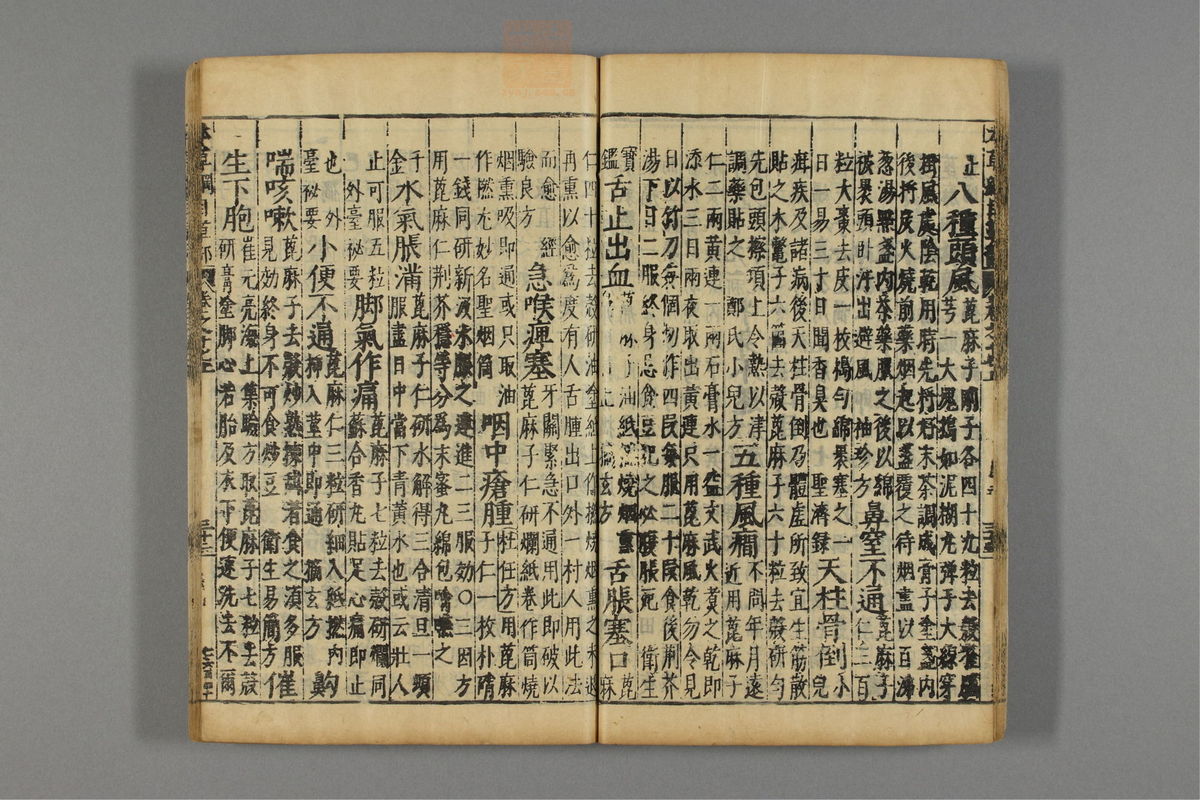 止 八種頭風 蓖麻子剛子各四十九粒去殼雀腦
芎一大塊搗如泥糊丸彈子大線穿
挂風處陰乾用時先將好末茶調成膏子塗盞內
後將炭火燒前藥烟起以盞覆之待烟盡以百沸
葱湯點盞內茶藥服之後以綿
被裹頭臥汗出避風 袖珍方 鼻窒不通 蓖麻子
仁三百
粒大棗去皮一枚搗勻綿裹塞之一
日一易三十日聞香臭也 聖濟錄 天柱骨倒 小兒
疳疾及諸病後天柱骨倒乃體虛所致宜生筋散
貼之木鱉子六箇去殼蓖麻子六十粒去殼研勻
先包頭擦項上令熱以津
調藥貼之 鄭氏小兒方 五種風癇 不問年月遠
近用蓖麻子
仁二兩黃連一兩石膏水一盌文武火煮之乾即
添水三日兩夜取出黃連只用蓖麻風乾勿令見
日以竹刀每個切作四段每服二十段食後荊芥
湯下日二服終身忌食豆犯之必腹脹死 衛生
寶鑑 舌止出血 油紙 燒烟熏
摘玄方 舌脹塞口 蓖麻
仁四十粒去殼研油塗紙上作撚燒烟熏之未退
再熏以愈為度有人舌腫出口外一村人用此法
而愈 經驗良方 急喉痺塞 牙關緊急不通用此即破以
蓖麻子仁研爛紙卷作筒燒
烟熏吸即通或只取油
作撚尤妙名聖烟筒 咽中瘡腫 杜任方用蓖麻
子仁一枚朴硝
一錢同研新汲水服之連進二三服効〇三因方
用蓖麻仁荆芥穗等分為末蜜丸綿包噙嚥之
千金 水氣脹滿 蓖麻子仁研水解得三合清旦一頓
服盡日中當下青黃水也或云壯人
止可服五粒
外臺秘要 脚氣作痛 蓖麻子七粒去殼研爛同
蘇合香丸貼足心痛即止
也 外臺秘要 小便不通 蓖麻仁三粒研細入紙撚內
揷入莖中即通 摘玄方 齁
喘咳嗽 蓖麻子去殼炒熟揀甜者食之須多服
見効終身不可食炒豆 衛生易簡方 催
生下胞 崔元亮海上集驗方取蓖麻子七粒去殼
研膏塗脚心若胎及衣下便速洗去不爾